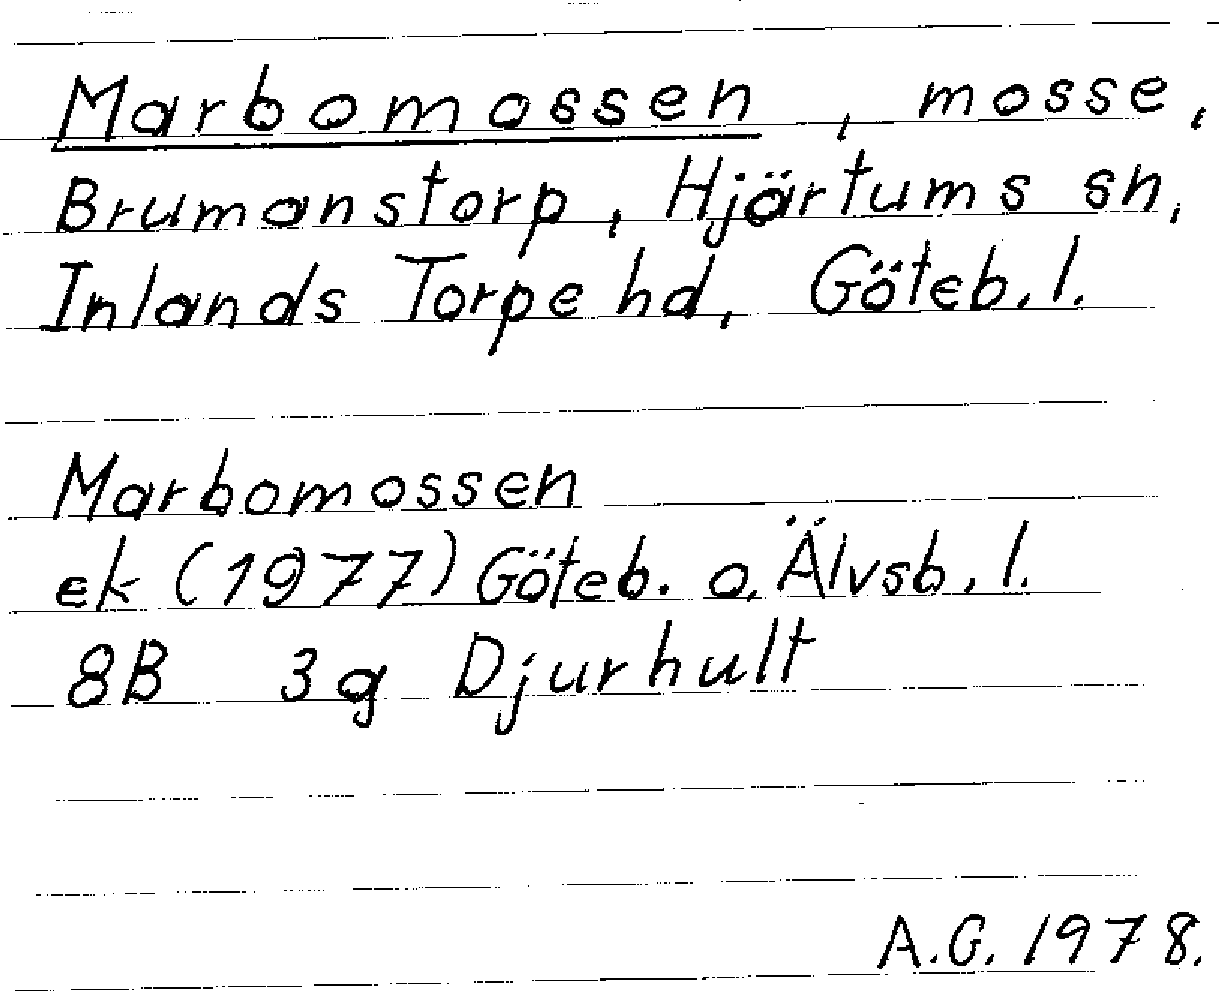 Marbomossen, mosse,
Brumanstorp, Hjärtums sn,
Inlands Torpe hd, Göteb. l.
Marbomossen
ek (1977) Göteb. o. Älvsb. l.
8B 3g Djurhult
A.G. 1978.